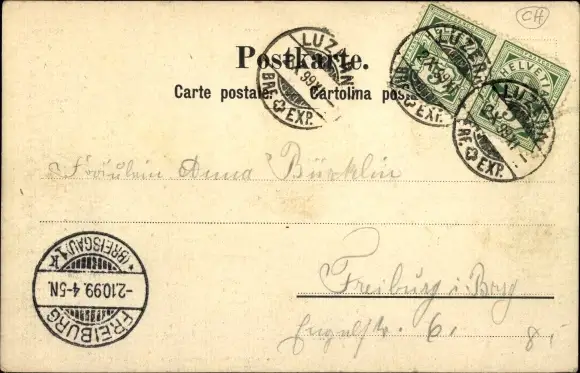 CH
Postkarte.
Carte postale. Cartolina post
LUZERN
BRF. EXP.
LUZERN
BRF. EXP.
LUZERN
BRF. EXP.
HELVETIA
Fräulein Anna Bürklin
Freiburg i. Brsg
6.
FREIBURG
-2.10.99. 4-5N.
* (BREISGAU) 1 K